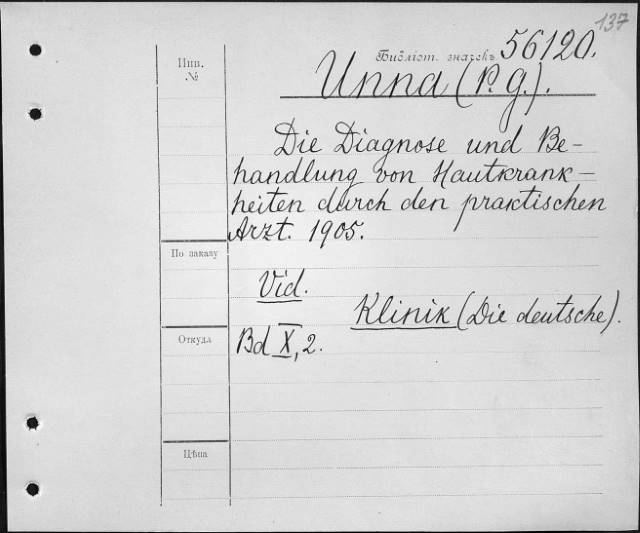 137
Инв.
№
Библіот. значекъ 56120.
Unna (P. g.).
Die Diagnose und Be-
handlung von Hautkrank-
heiten durch den praktischen
Arzt. 1905.
По заказу
Vid.
Klinik (Die deutsche).
Откуда
Bd X, 2.
Цѣна